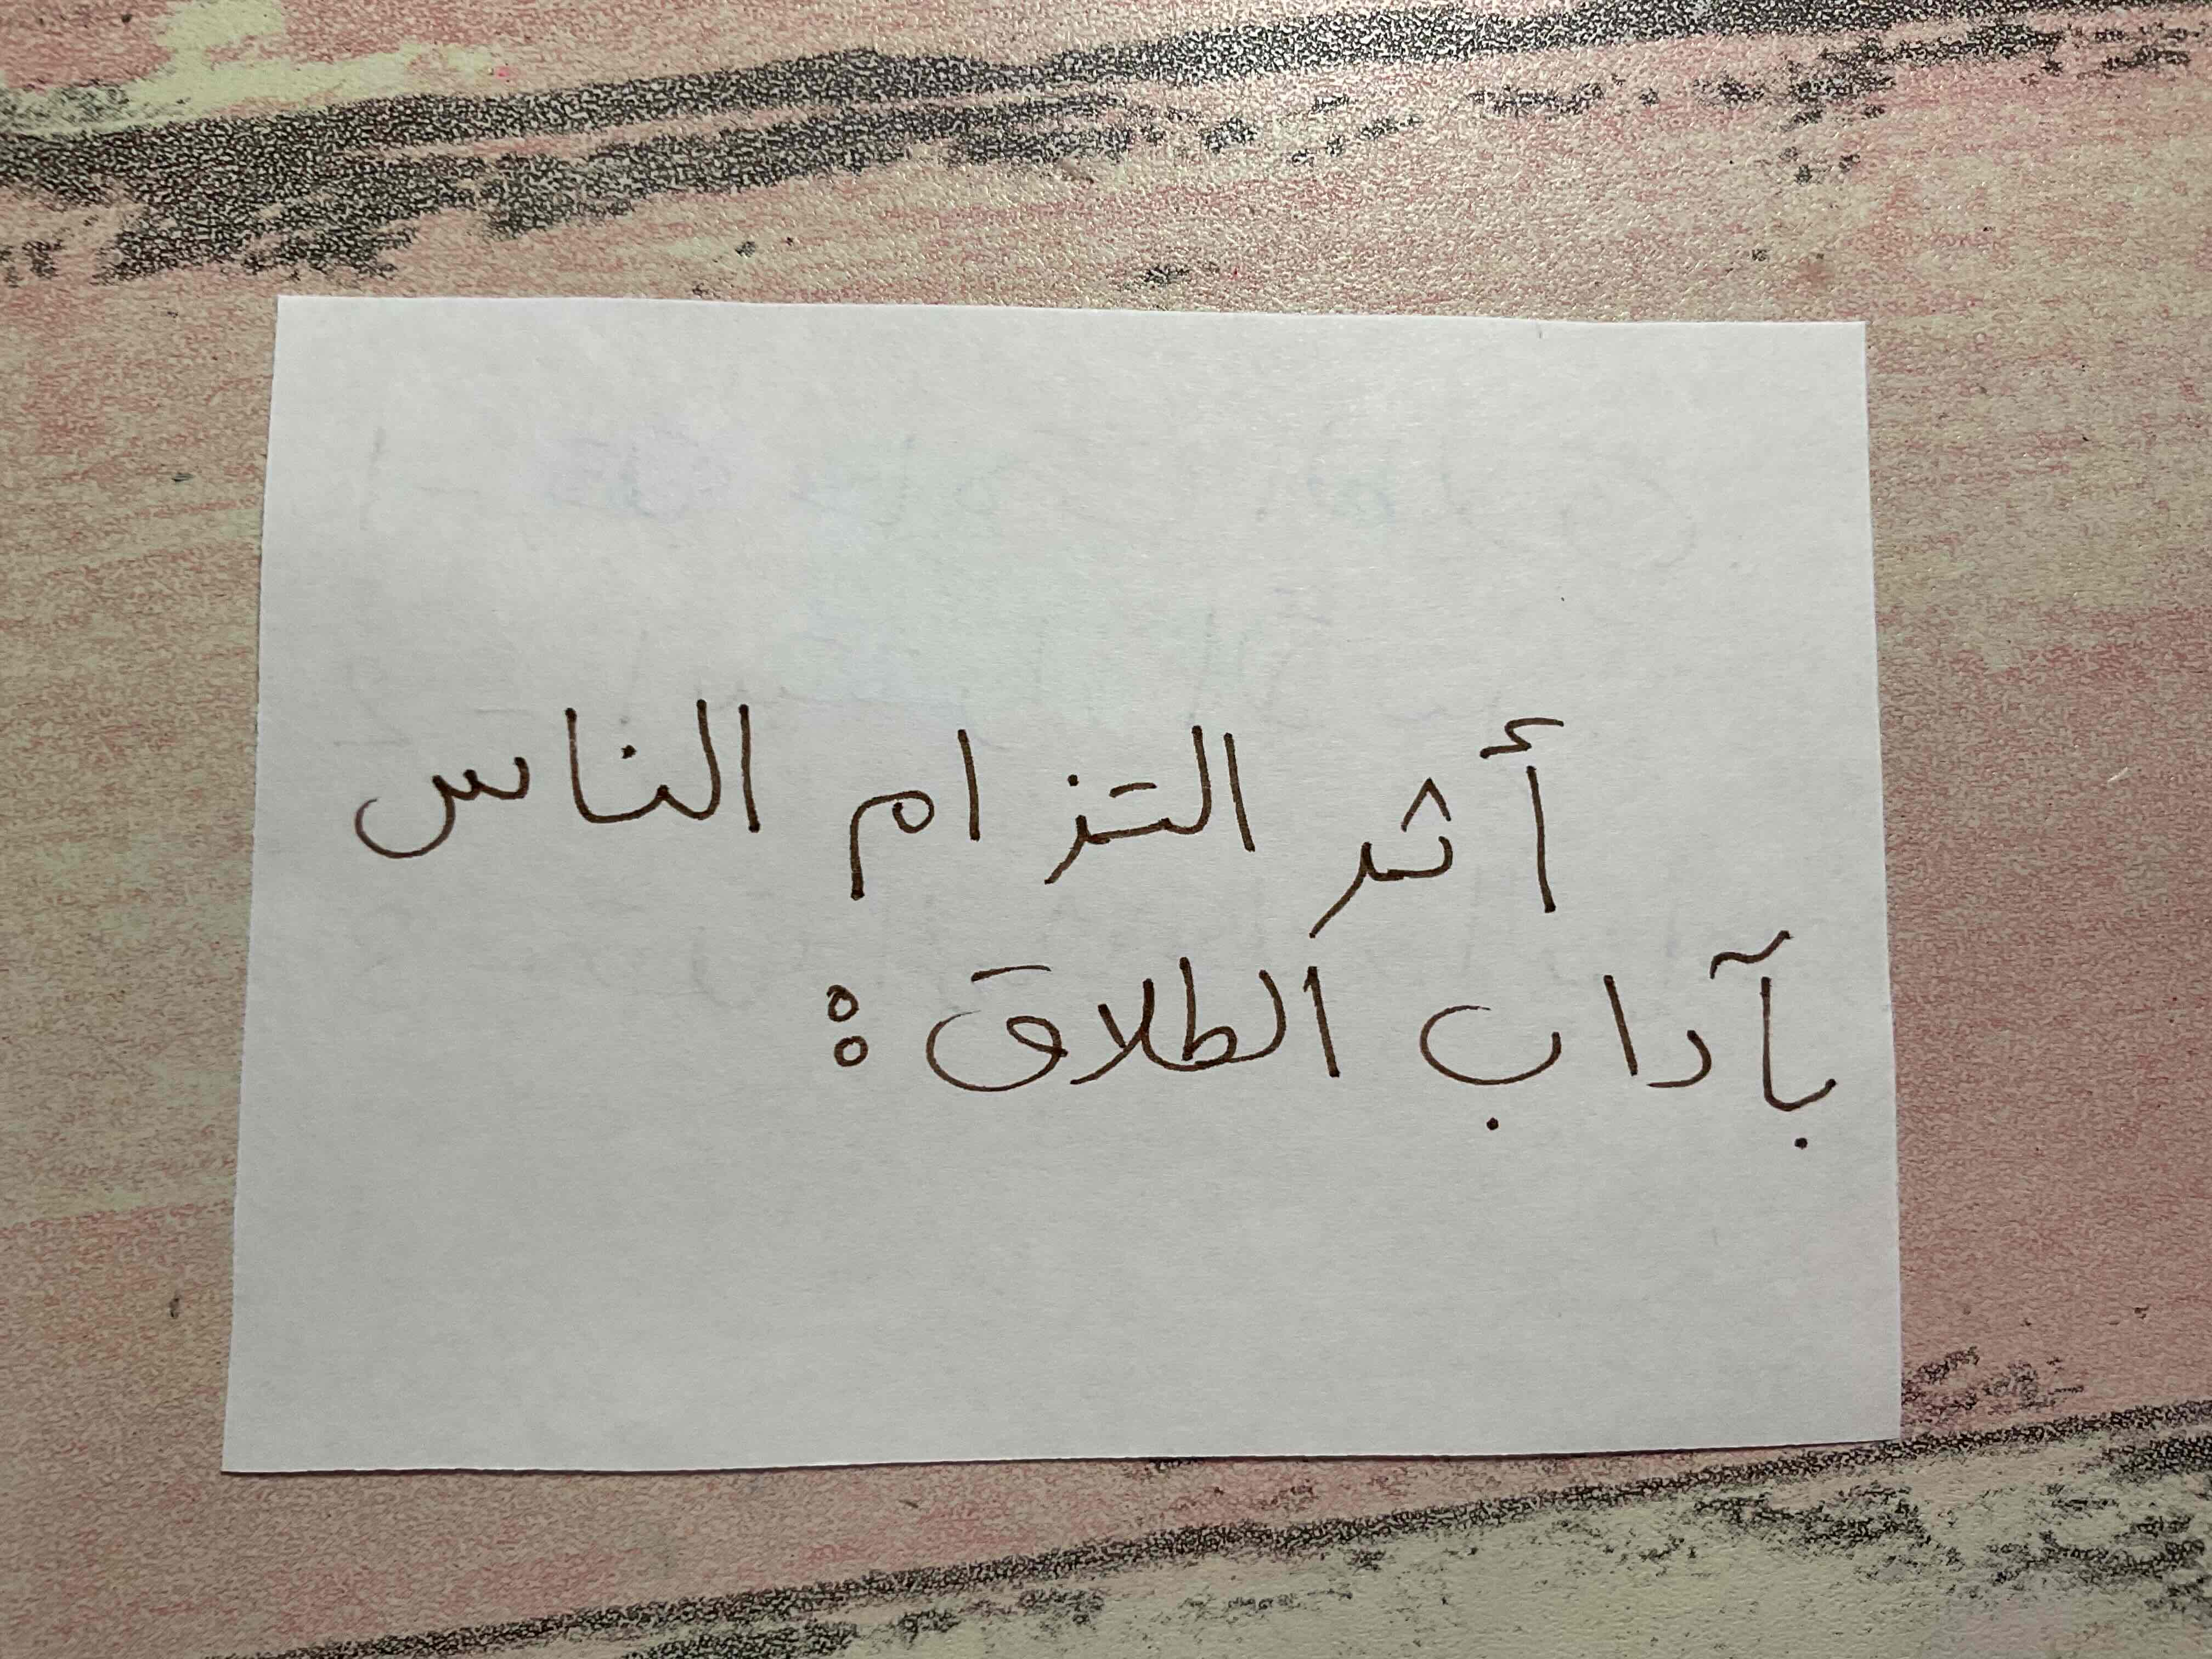 أثر التزام الناس
بآداب الطلاق :